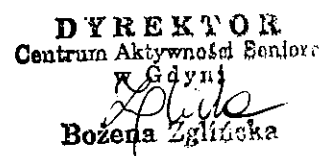 DYREKTOR
Centrum Aktywności Seniora
w Gdyni
Bożena Zglińska